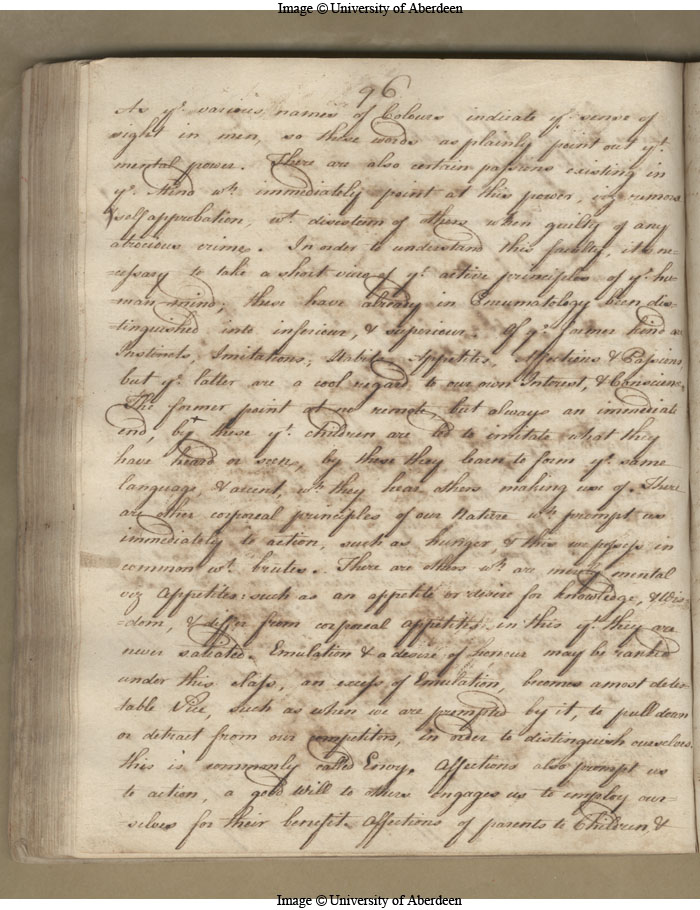 Image © University of Aberdeen
96
As yᵉ various names of Colours indicate yᵉ sense of
sight in men, so these words as plainly point out yᵗ
mental power. There are also certain passions existing in
yᵉ Mind wʰ immediately point at this power, viz remorse
& self approbation, wᵗ disesteem of others when guilty of any
atrocious crime. In order to understand this faculty, it is ne-
-cessary to take a short view of yᵉ active principles of yᵉ hu-
-man mind; these have already in Pneumatology been dis-
-tinguished into inferiour, & superiour. Of yᵉ former kind are
Instincts, Imitations, Habits, Appetites, Affections & Passions
but yᵉ latter are a cool regard to our own Interest, & Conscience,
The former point at no remote but always an immediate
end, by these yᵗ children are led to imitate what they
have heard or seen, by these they learn to form yᵉ same
language, & accent, wʰ they hear others making use of. There
are other corporeal principles of our Nature wʰ prompt us
immediately to action, such as hunger, & this we possess in
common wᵗ brutes. There are others wʰ are merely mental
viz Appetites: such as an appetite or desire for knowledge, & Wis-
-dom, & differ from corporeal appetites in this yᵗ they are
never satiated. Emulation & a desire of honour may be ranked
under this class, an excess of Emulation, becomes a most detes-
table Vice, such as when we are prompted by it, to pull down
or detract from our competitors, in order to distinguish ourselves
this is commonly called Envy. Affections also prompt us
to action, a good will to others engages us to employ our-
-selves for their benefit. Affections of parents to Children, &
Image © University of Aberdeen